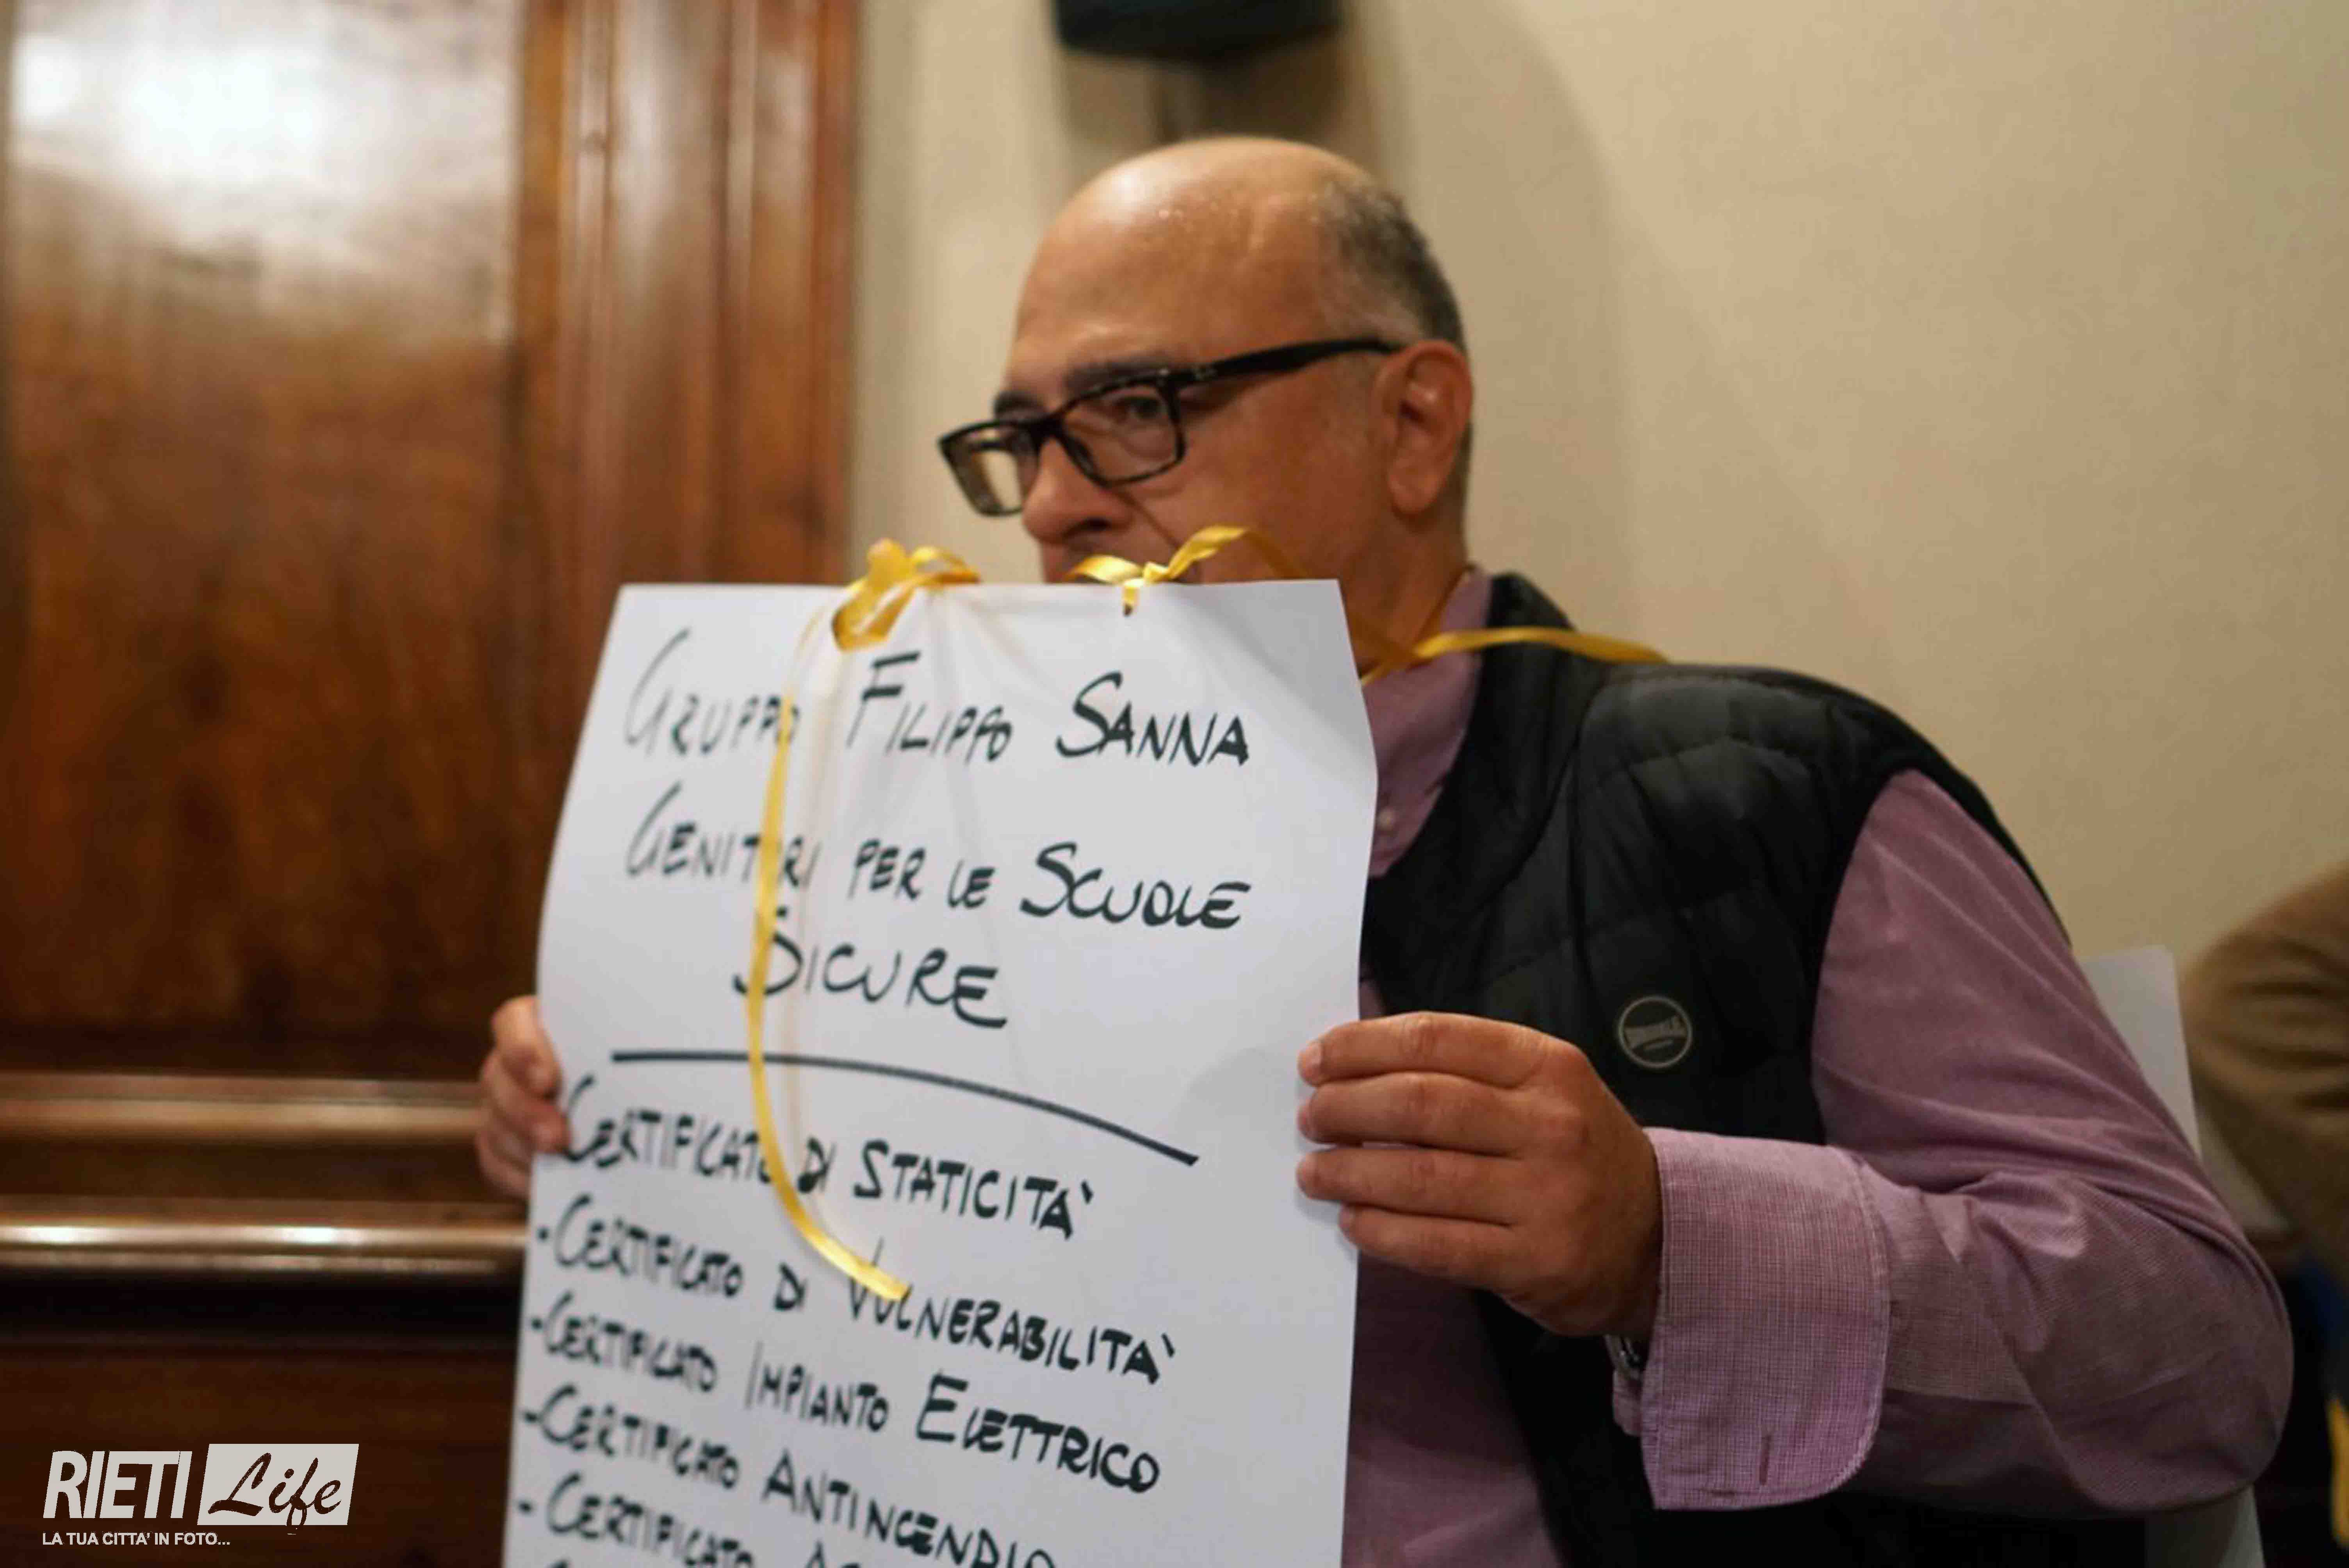 GRUPPO FILIPPO SANNA
GENITORI PER LE SCUOLE
SICURE
CERTIFICATO DI STATICITA'
-CERTIFICATO DI VULNERABILITA'
-CERTIFICATO IMPIANTO ELETTRICO
-CERTIFICATO ANTINCENDIO
- CERTIFICATO
RIETI Life
LA TUA CITTA' IN FOTO...